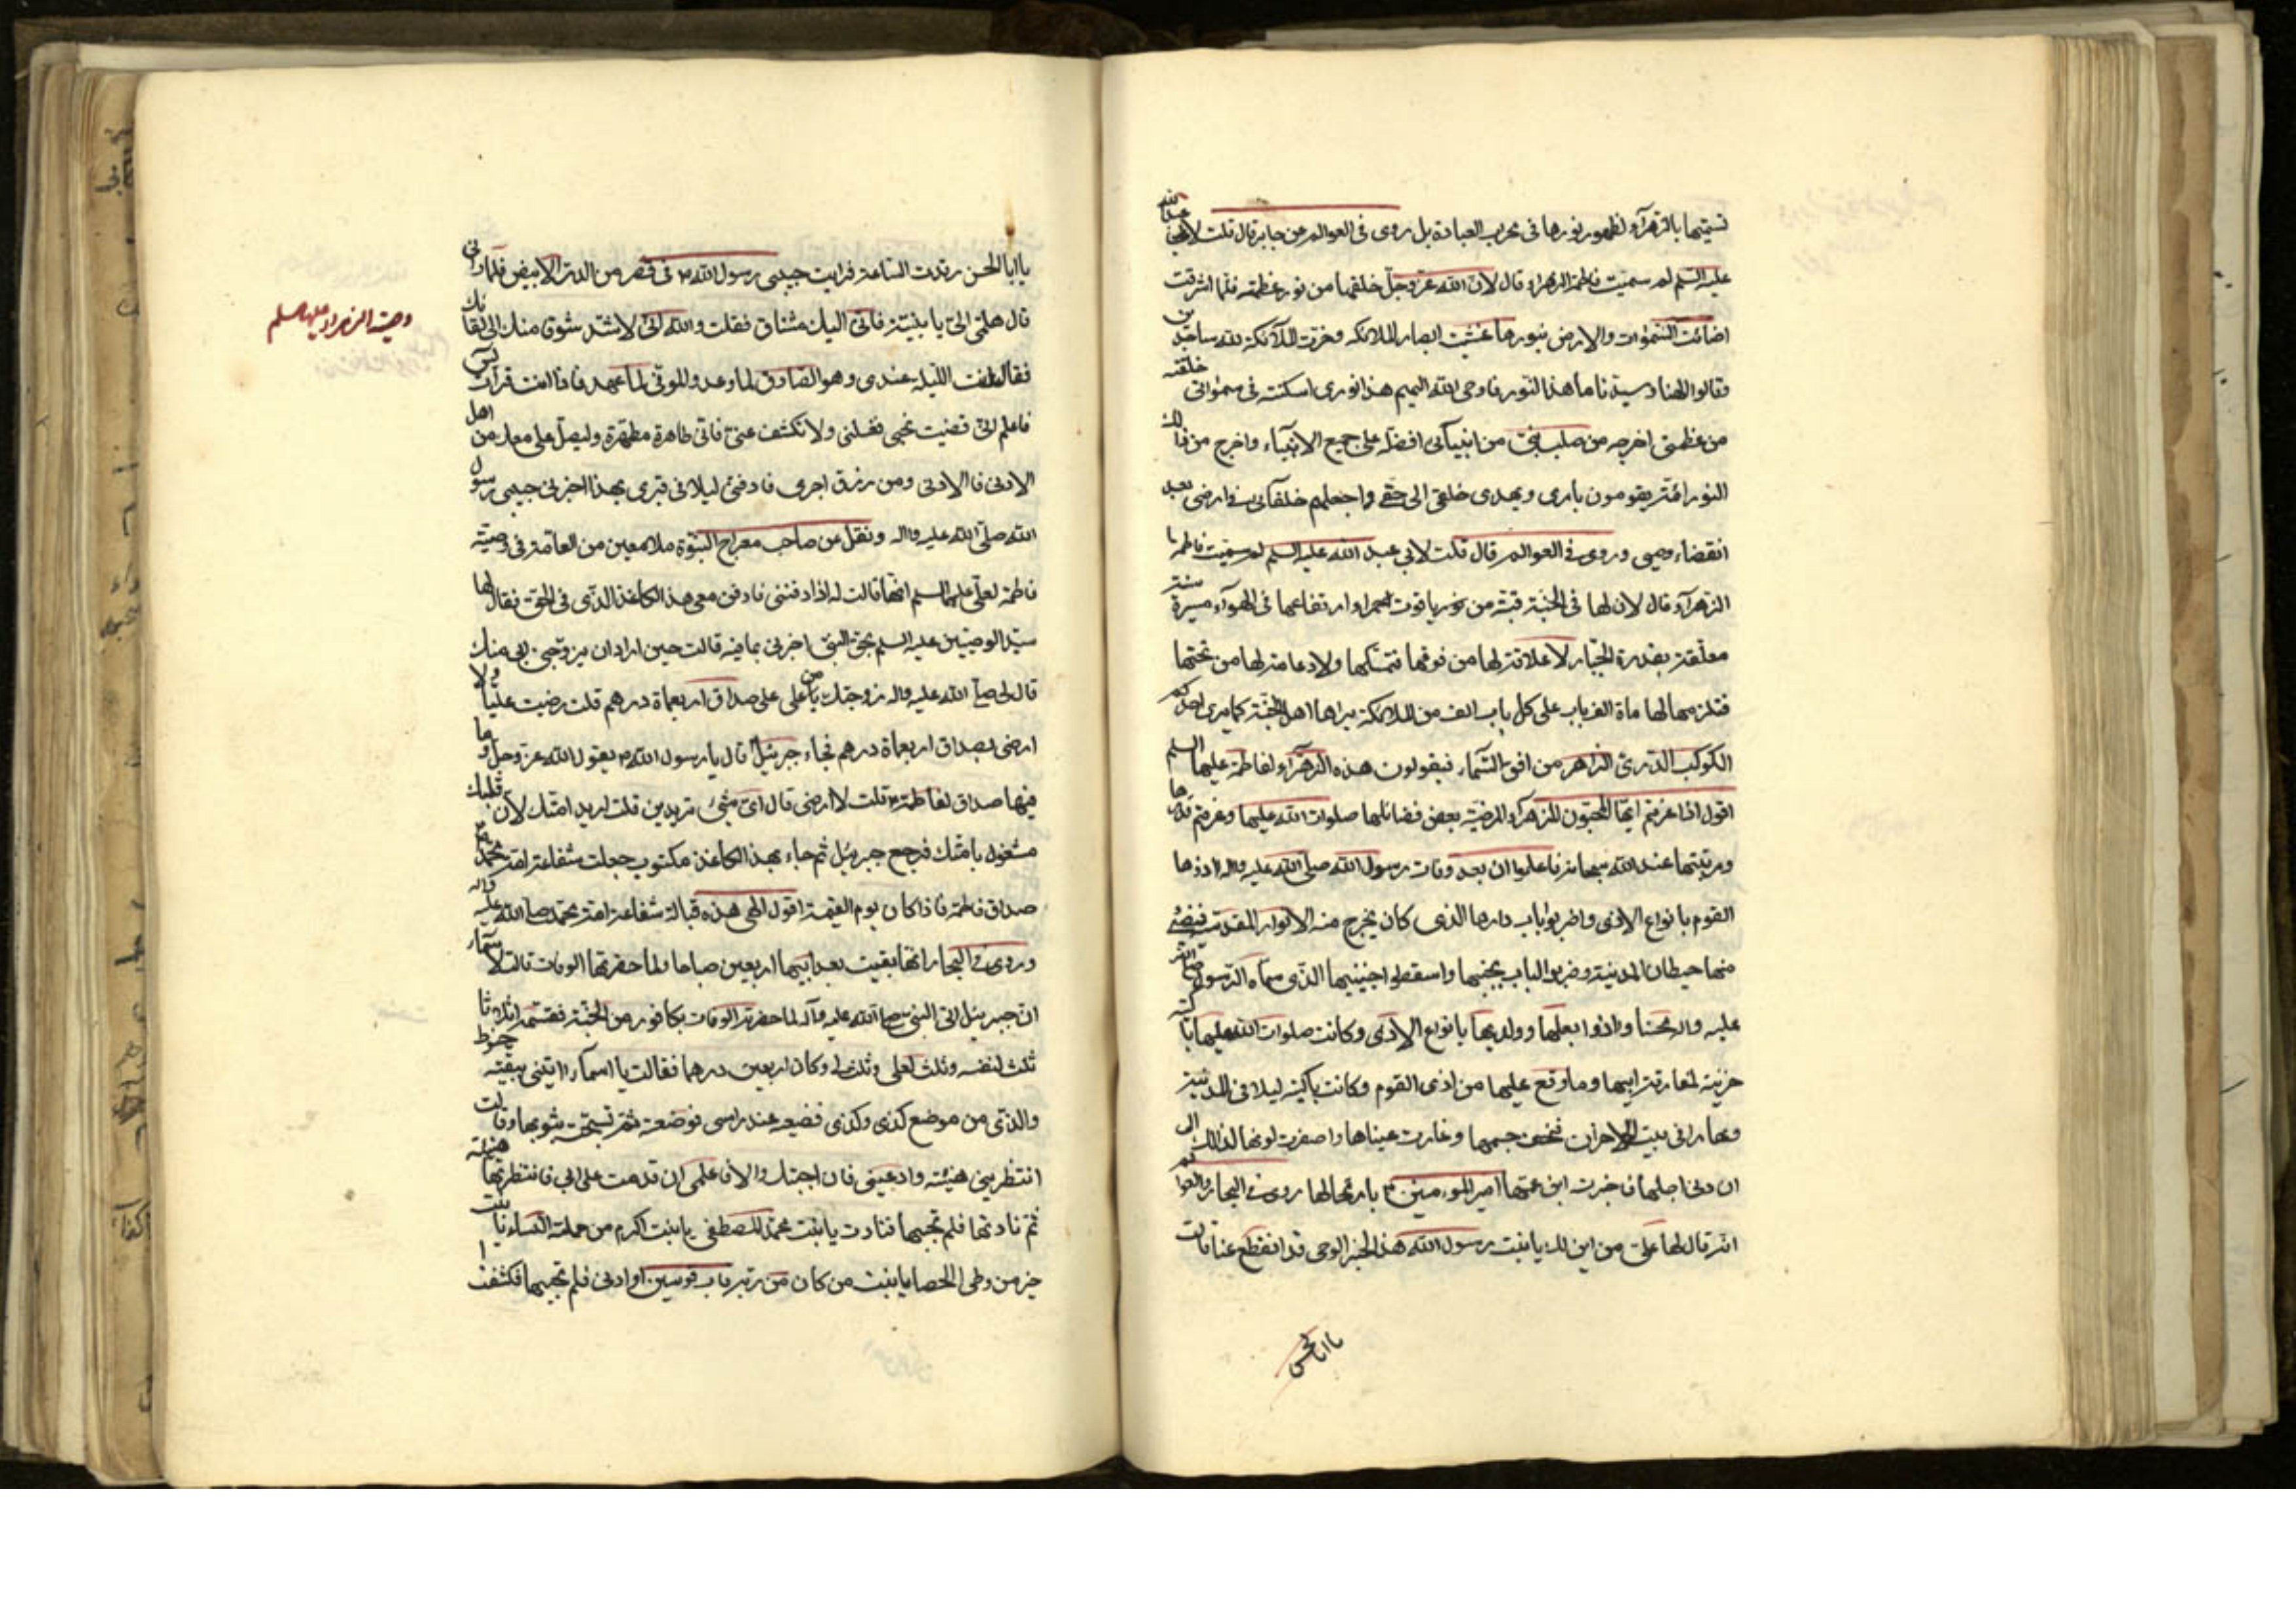 تسميتها بالزهرآء لظهور نورها فى محراب العبادة بل روى فى العوالم عن جابر قال قلت لابى عبد الله
عليه السلم لم سميت فاطمة الزهراء قال لان الله عز وجل خلقها من نور عظمته فلما اشرقت
اضائت السموات والارض بنورها غشيت ابصار الملائكه وخرت الملآئكة لله ساجدين
وقالوا الهنا وسيدنا ما هذا النور فاوحى الله اليهم هذا نورى اسكنته فى سمواتى خلقته
من عظمتى اخرجه من صلب نبى من انبيآئى افضله على جميع الانبيآء واخرج من ذلك
النور ائمة يقومون بامرى ويهدى خلقى الى حقى واجعلهم خلفآئى فى ارضى بعد
انقضاء وحيى وروى فى العوالم قال قلت لابى عبد الله عليه السلم لم سميت فاطمه
الزهرآء قال لان لها فى الجنة قبة من نور ياقوت حمراء ارتفاعها فى الهوآء مسيرة سنة
معلقة بقدرة الجبار لا علاقة لها من فوقها فتمسكها ولا دعامة لها من تحتها
فتلزمها لها ماة الف باب على كل باب الف من الملائكة يراها اهل الجنة كما يرى احدكم
الكوكب الدرى الزاهر من افق السمآء فيقولون هذه الزهرآء لفاطمة عليها السلم
اقول اذا عرفتم ايها المحبون للزهرآء المرضية بعض فضائلها صلوات الله عليها وعرفتم قدرها
ومرتبتها عند الله سبحانه فاعلموا ان بعد وفات رسول الله صلى الله عليه واله اذوها
القوم بانواع الاذى واضربوا باب دارها الذى كان يخرج منه الانوار المقدسة
منها حيطان المدينة وضربوا الباب بجنبها واسقطوا جنينها الذى سماه الرسول صلى الله
عليه واله محسنا واذوا بعلها وولديها بانواع الاذى وكانت صلوات الله عليها باكية
حزينة لمفارقة ابيها وما وقع عليها من اذى القوم وكانت باكية ليلا فى المدينة
ونهارا فى بيت الاحزان فنحل جسمها وغارت عيناها واصفرت لونها لذالك الى
ان دنى اجلها فاخبرت ابن عمها امير المومنين بارتحالها روى فى البحار والعوالم
انه قال لها على من اين لك يا بنت رسول الله هذا الخبر والوحى قد انقطع عنا قالت
يا ابا الحسن
يا ابا الحسن رقدت الساعة فرايت حبيبى رسول الله فى قصر من الدر الابيض فلما رانى
قال هلمى الى يا بنية فانى اليك مشتاق فقلت والله انى لاشد شوقا منك الى لقائك
فقال انت الليلة عندى وهو الصادق لما وعد والموفى لما عهد فاذا انت قرات يس
فاعلم انى قضيت نحبى فغسلنى ولا تكشف عنى فانى طاهرة مطهرة وليصل على معك من اهلى
الادنى فالادنى ومن رزق اجرى فادفنى ليلا فى قبرى بهذا اخبرنى حبيبى رسول
الله صلى الله عليه واله ونقل عن صاحب معراج النبوة ملا معين من العامة فى وصية
فاطمة لعلى عليهما السلم انها قالت له اذا دفنتنى فادفن معى هذا الكاغذ الذى فى الحقة فقال لها
سيد الوصيين عليه السلم بحق النبى اخبرنى بما فيه قالت حين اراد ان يزوجنى ابى منك
قال لى صلى الله عليه واله زوجتك من على على صداق اربعماة درهم قلت رضيت عليا ولا
ارضى بصداق اربعماة درهم فجاء جبرئيل قال يا رسول الله يقول الله عز وجل الجنة وما
فيها صداق لفاطمة قلت لا ارضى قال اى شئ تريدين قلت اريد امتك لان قلبك
مشغول بامتك فرجع جبرئيل ثم جاء بهذا الكاغذ مكتوب جعلت شفاعة امة محمد
صداق فاطمة فاذا كان يوم القيمة اقول الهى هذه قبالة شفاعة امة محمد صلى الله عليه واله
وروى فى البحار انها بقيت بعد ابيها اربعين صباحا ولما حضرتها الوفات قالت لاسمآء
ان جبرئيل اتى النبى صلى الله عليه وآله لما حضرته الوفات بكافور من الجنة فقسمه اثلاثا
ثلث لنفسه وثلث لعلى وثلث لى وكان اربعين درهما فقالت يا اسمآء ايتنى ببقية حنوط
والدى من موضع كذى وكذى فضعيه عند راسى فوضعته ثم تسجت بثوبها وقالت
انتظرينى هنيئة وادعينى فان اجبتك والا فاعلمى ان قدمت على ابى فانتظرتها هنيئة
ثم نادتها فلم تجبها فنادت يا بنت محمد المصطفى يا بنت اكرم من حملته النساء يا بنت
خير من وطى الحصا يا بنت من كان من ربه قاب قوسين او ادنى فلم تجبها فكشفت
وصية الزهراء عليها السلم